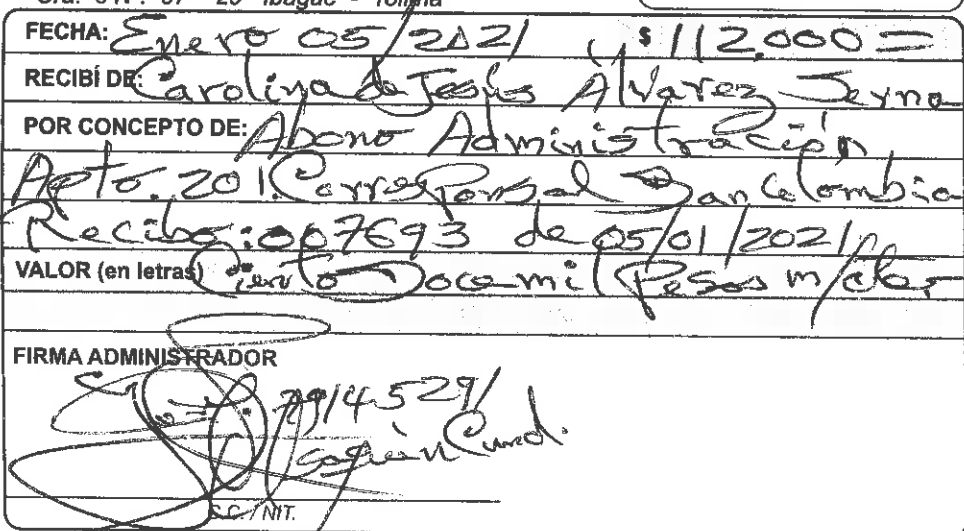 Ibagué - Tolima
FECHA: Enero 05/2021 $ 112.000=
RECIBÍ DE: Carolina de Jesús Alvarez
POR CONCEPTO DE: Abono Administración
Apto. 201 Corresponsal Bancolombia
Recibo: 007693 de 05/01/2021
VALOR (en letras) Ciento Doce mil Pesos m/cte
FIRMA ADMINISTRADOR
C.C. / NIT.